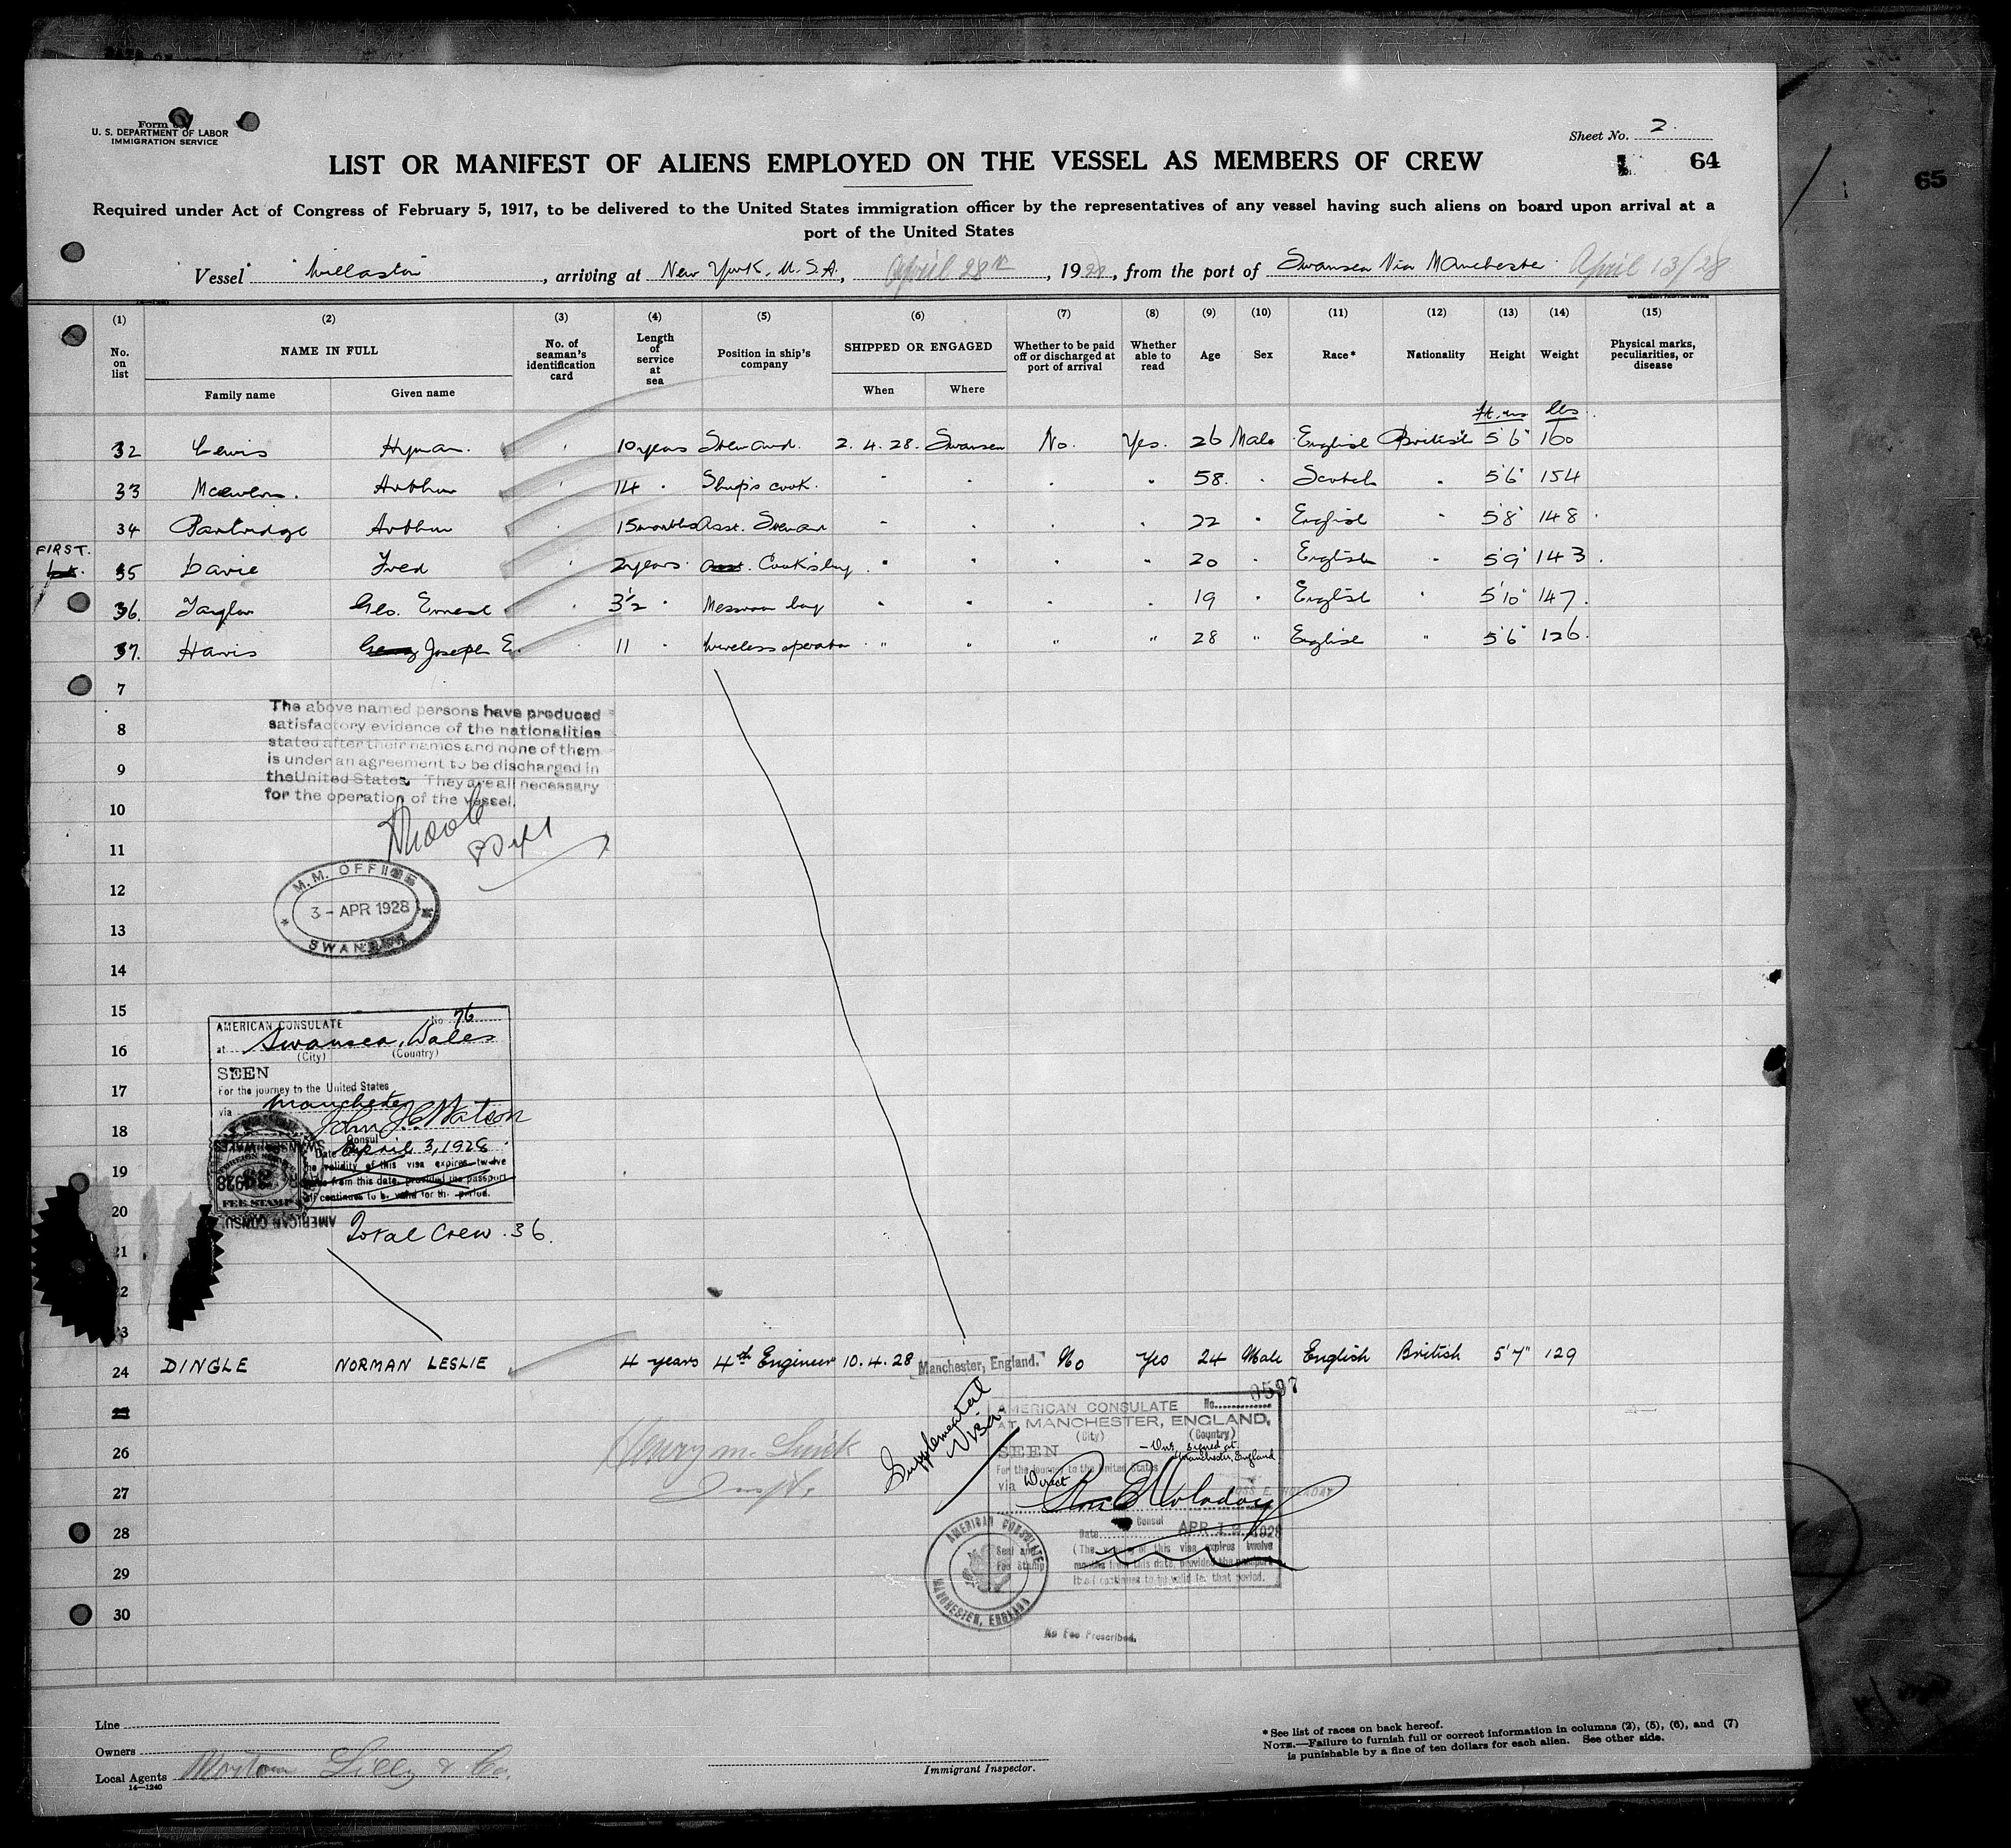 Form
U. S. DEPARTMENT OF LABOR
IMMIGRATION SERVICE
Sheet No. 2.
LIST OR MANIFEST OF ALIENS EMPLOYED ON THE VESSEL AS MEMBERS OF CREW
64
65
Required under Act of Congress of February 5, 1917, to be delivered to the United States immigration officer by the representatives of any vessel having such aliens on board upon arrival at a
port of the United States
Vessel Willaston, arriving at New York. U.S.A., April 28th, 1928, from the port of Swansea Via Manchester April 13/28
(1) (2) (3) (4) (5) (6) (7) (8) (9) (10) (11) (12) (13) (14) (15)
No. on list
NAME IN FULL
Family name Given name
No. of seaman's identification card
Length of service at sea
Position in ship's company
SHIPPED OR ENGAGED
When Where
Whether to be paid off or discharged at port of arrival
Whether able to read
Age
Sex
Race*
Nationality
Height
Weight
Physical marks, peculiarities, or disease
ft. ins lbs.
32 Lewis Hyman. 10 years Steward. 2.4.28. Swansea No. Yes. 26 Male English British 5'6" 160
33 Arthur 14 " Ship's cook. " " " " 58. " Scotch " 5'6" 154
34 Partridge Arthur 15 months Asst. Steward " " " " 22 " English " 5'8" 148
FIRST.
35 Davie Fred 2 years. Cook's boy " " " " 20 " English " 5'9" 143.
36. Taylor Geo. Ernest 3½ " Messroom boy " " " " 19 " English " 5'10" 147.
37. Harris Joseph E. 11 " Wireless operator " " " " 28 " English " 5'6" 126.
7
The above named persons have produced
satisfactory evidence of the nationalities
stated after their names and none of them
is under an agreement to be discharged in
the United States. They are all necessary
for the operation of the vessel.
8
9
10
11
M.M. OFFICE
3 - APR 1928
SWANSEA
12
13
14
15
AMERICAN CONSULATE No 76
at Swansea, Wales
(City) (Country)
16
SEEN
For the journey to the United States
17
via Manchester
John J. C. Watson
18
Consul
Date April 3, 1928
The validity of this visa expires twelve
19
months from this date, provided the passport
itself continues to be valid for that period.
FEE STAMP
20
AMERICAN CONSU
Total Crew. 36.
21
22
23
24 DINGLE NORMAN LESLIE 4 years 4th Engineer 10.4.28 Manchester, England. No Yes 24 Male English British 5'7" 129
0597
Supplemental Visa
AMERICAN CONSULATE No.
AT MANCHESTER, ENGLAND.
(City) (Country)
26
SEEN
signed at
Manchester, England
For the journey to the United States
via Direct
27
Ross E Holaday
ROSS E. HOLADAY
28
Consul
Date APR 12 1928
(The validity of this visa expires twelve
months from this date, provided the passport
itself continues to be valid for that period.
29
Seal and
Fee Stamp
AMERICAN CONSULATE
MANCHESTER, ENGLAND
30
No Fee Prescribed.
Line
Owners
Local Agents Lilly & Co.
14—1240
Immigrant Inspector.
*See list of races on back hereof.
NOTE.—Failure to furnish full or correct information in columns (2), (5), (6), and (7)
is punishable by a fine of ten dollars for each alien. See other side.